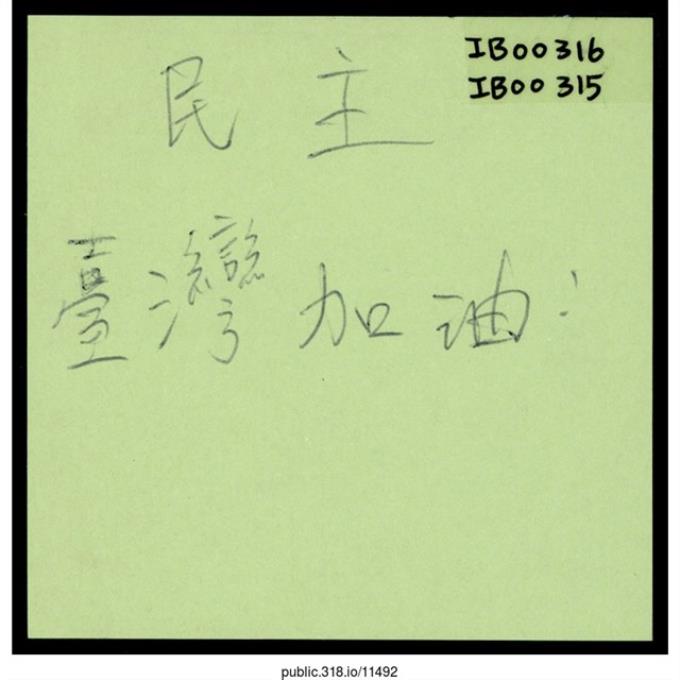 IB00316
IB00315
民主
臺灣加油!
public.318.io/11492